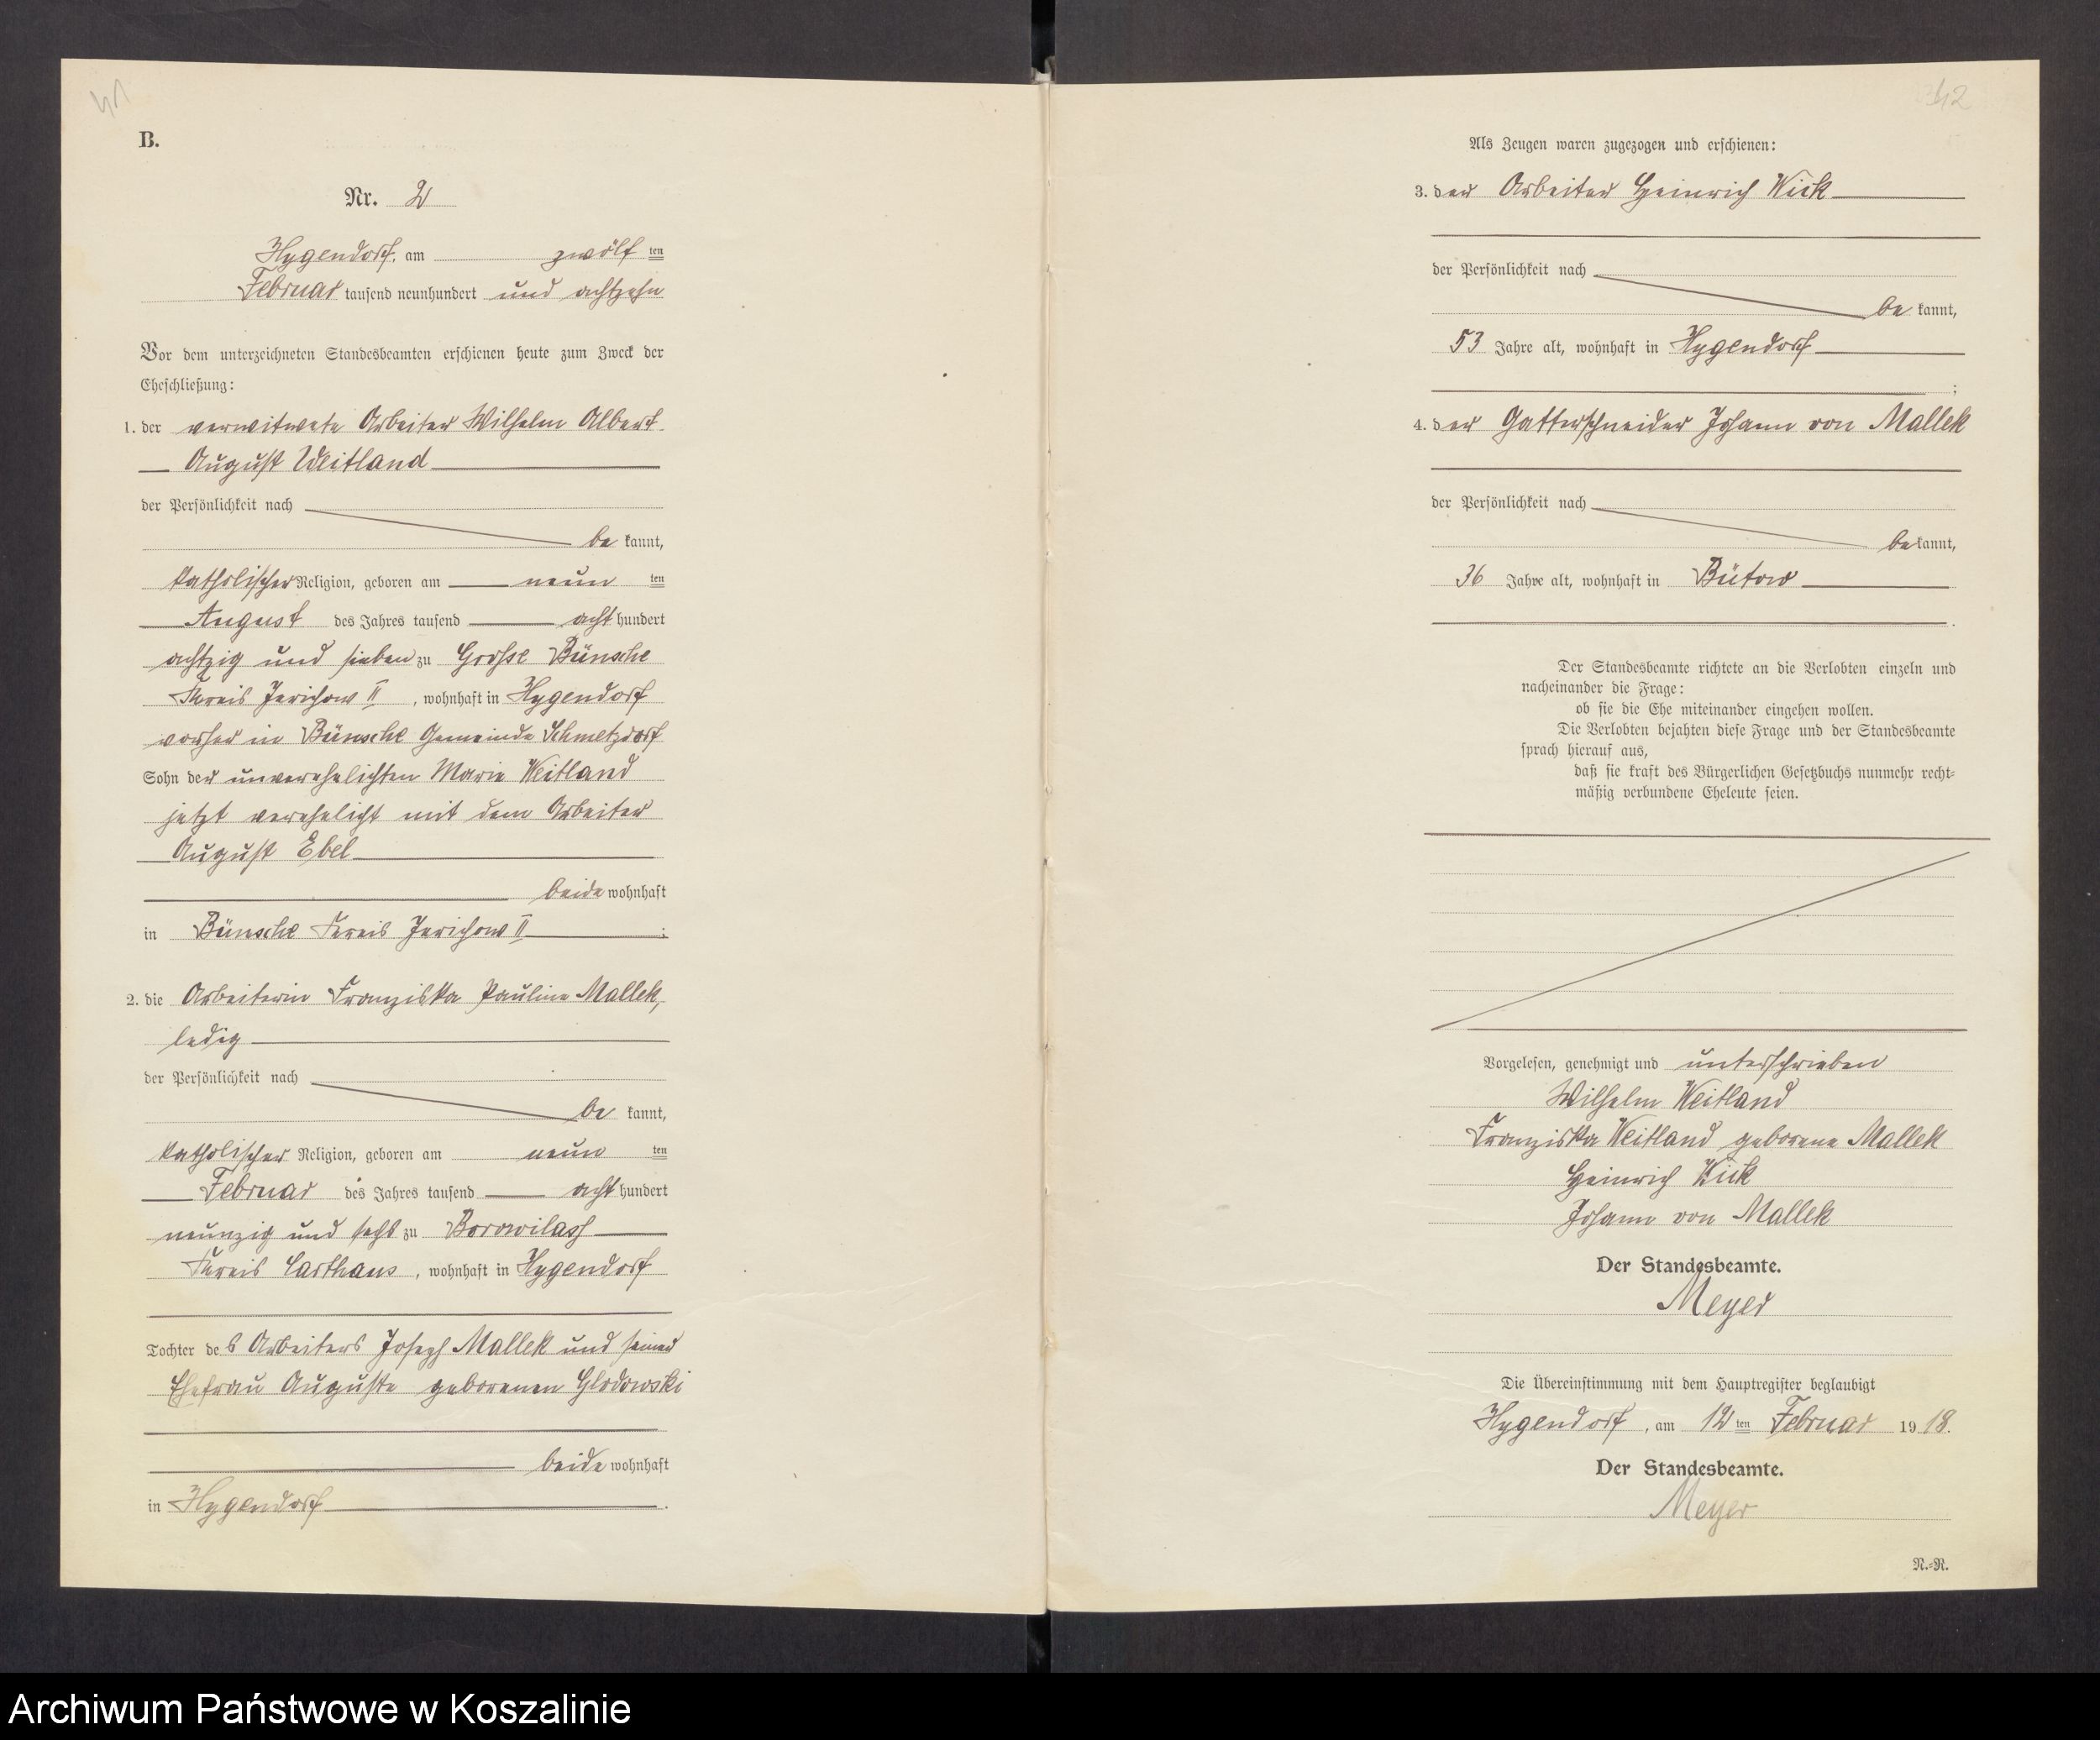 41
B.
Nr. 2
Hygendorf, am zwölf ten
Februar tausend neunhundert und achtzehn
Vor dem unterzeichneten Standesbeamten erschienen heute zum Zweck der
Eheschließung:
1. der verwitwete Arbeiter Wilhelm Albert
August Weitland
der Persönlichkeit nach
be kannt,
katholischer Religion, geboren am neun ten
August des Jahres tausend acht hundert
achtzig und sieben zu Grosse Bünsche
Kreis Jerichow II, wohnhaft in Hygendorf
vorher in Bünsche Gemeinde Schmetzdorf
Sohn der unverehelichten Marie Weitland
jetzt verehelicht mit dem Arbeiter
August Ebel
beide wohnhaft
in Bünsche Kreis Jerichow II;
2. die Arbeiterin Franziska Pauline Mallek,
ledig
der Persönlichkeit nach
be kannt,
katholischer Religion, geboren am neun ten
Februar des Jahres tausend acht hundert
neunzig und sechs zu Borowilash
Kreis Carthaus, wohnhaft in Hygendorf
Tochter des Arbeiters Joseph Mallek und seiner
Ehefrau Auguste geborenen Glodowski
beide wohnhaft
in Hygendorf.
42
Als Zeugen waren zugezogen und erschienen:
3. der Arbeiter Heinrich Wick
der Persönlichkeit nach
be kannt,
53 Jahre alt, wohnhaft in Hygendorf
;
4. der Gatterschneider Johann von Mallek
der Persönlichkeit nach
be kannt,
36 Jahre alt, wohnhaft in Bütow
.
Der Standesbeamte richtete an die Verlobten einzeln und
nacheinander die Frage:
ob sie die Ehe miteinander eingehen wollen.
Die Verlobten bejahten diese Frage und der Standesbeamte
sprach hierauf aus,
daß sie kraft des Bürgerlichen Gesetzbuchs nunmehr recht-
mäßig verbundene Eheleute seien.
Vorgelesen, genehmigt und unterschrieben
Wilhelm Weitland
Franziska Weitland geborene Mallek
Heinrich Wick
Johann von Mallek
Der Standesbeamte.
Meyer
Die Übereinstimmung mit dem Hauptregister beglaubigt
Hygendorf, am 12 ten Februar 1918.
Der Standesbeamte.
Meyer
N.-R.
Archiwum Państwowe w Koszalinie